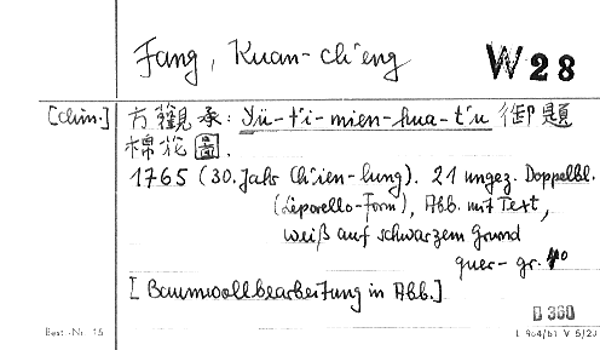 Fang, Kuan-ch'eng
W 28
[chin.] 方觀承: Yü-t'i-mien-hua-t'u 御題
棉花圖.
1765 (30. Jahr Ch'ien-lung). 21 ungez. Doppelbl.
(Leporello-Form), Abb. mit Text,
weiß auf schwarzem Grund
quer- gr. 4o
[Baumwollbearbeitung in Abb.]
D 360
Best.-Nr. 15